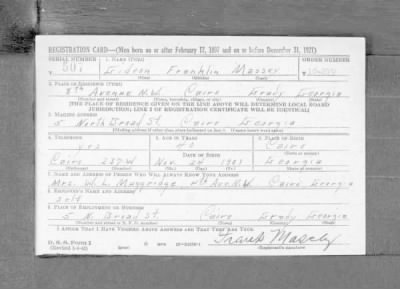 REGISTRATION CARD—(Men born on or after February 17, 1897 and on or before December 31, 1921)
SERIAL NUMBER 1. NAME (Print) ORDER NUMBER
Gideon Franklin Massey
(First) (Middle) (Last)
2. PLACE OF RESIDENCE (Print)
8th Avenue N.W. Cairo Grady Georgia
[THE PLACE OF RESIDENCE GIVEN ON THE LINE ABOVE WILL DETERMINE LOCAL BOARD
JURISDICTION; LINE 2 OF REGISTRATION CERTIFICATE WILL BE IDENTICAL]
3. MAILING ADDRESS
5 North Broad St. Cairo Georgia
[Mailing address if other than place indicated on line 2. If same insert word same]
4. TELEPHONE 5. AGE IN YEARS 6. PLACE OF BIRTH
yes 40 Cairo
DATE OF BIRTH
Cairo 257-W Nov 24 1901 Georgia
7. NAME AND ADDRESS OF PERSON WHO WILL ALWAYS KNOW YOUR ADDRESS
Mrs. W. L. 8th Ave N.W. Cairo Georgia
8. EMPLOYER'S NAME AND ADDRESS
self
9. PLACE OF EMPLOYMENT OR BUSINESS
5 N. Broad St. Cairo Grady Georgia
I AFFIRM THAT I HAVE VERIFIED ABOVE ANSWERS AND THAT THEY ARE TRUE.
D. S. S. Form 1 Frank Massey
(Registrant's signature)